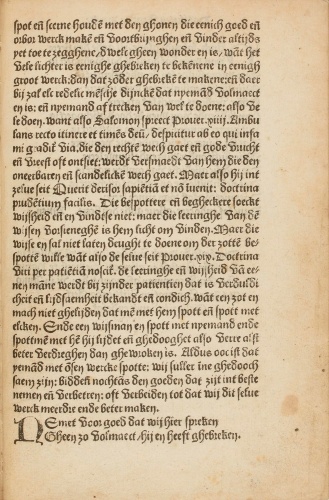 spot eñ scerne houdẽ met den ghonen die eenich goed eñ
orbor werck makẽ eñ Voortbrynghen eñ vinder altijds
yet toe te zegghene, dwelc gheen wonder en is, wãt het
vele lichter is eenighe ghebreke te bekẽnene in eenigh
groot werck: dan dat zõder ghebreke te makene: eñ daer
bij zal elc redelic mẽsche dijncke dat nyemãd volmaect
en is: eñ nyemand af trecken van wel te doene: also ve
le doen. want also Salomon spreect Prouer. xiiij. Ambu
lans recto itinere et timẽs deũ, despicitur ab eo qui infa
mi gradit via. die den rechtẽ wech gaet eñ gode vrucht
eñ vreest oft ontsiet: werdt versmaedt van hem die den
oneerbaren eñ scandelickẽ wech gaet. Maer also hij int
zelue seit Querit derisor sapiẽtiã et nõ inuenit: doctrina
pudẽtium facilis. Die bespottere eñ begheckere soeckt
wijsheid eñ en vindese niet: maer die leeringhe van dẽ
wijsen voorsieneghẽ is hem licht om vinden. Maer die
wijse en sal niet laten deught te doene om der zottẽ be-
spottẽ wille wãt also de selue seit Prouer. xix. Doctrina
viri per patiẽtiã noscit. de leeringhe eñ wijsheid vã ee-
nen mãne werdt bij zijnder patientien dat is verduldi
cheit eñ lijdsaemheit bekandt eñ condich. wãt een zot en
mach niet ghelijden dat mẽ met hem spott eñ spott met
elcken. Ende een wijsman en spott met nyemand ende
spottmẽ met hẽ hij lijdet eñ ghedooghet also verre alst
beter verdreghen dan ghewroken is. Aldus oocist dat
yemãd met õsen wercke spotte: wij sullet int ghedooch
saem zijn: biddẽn nochtãs den goeden dat zijt int beste
nemen eñ verbetren: oft verbeiden tot dat wij dit selue
werck meerdre ende beter maken.
Nemet voor goed dat wij hier spreken
Gheen zo volmaect, hij en heeft ghebreken.